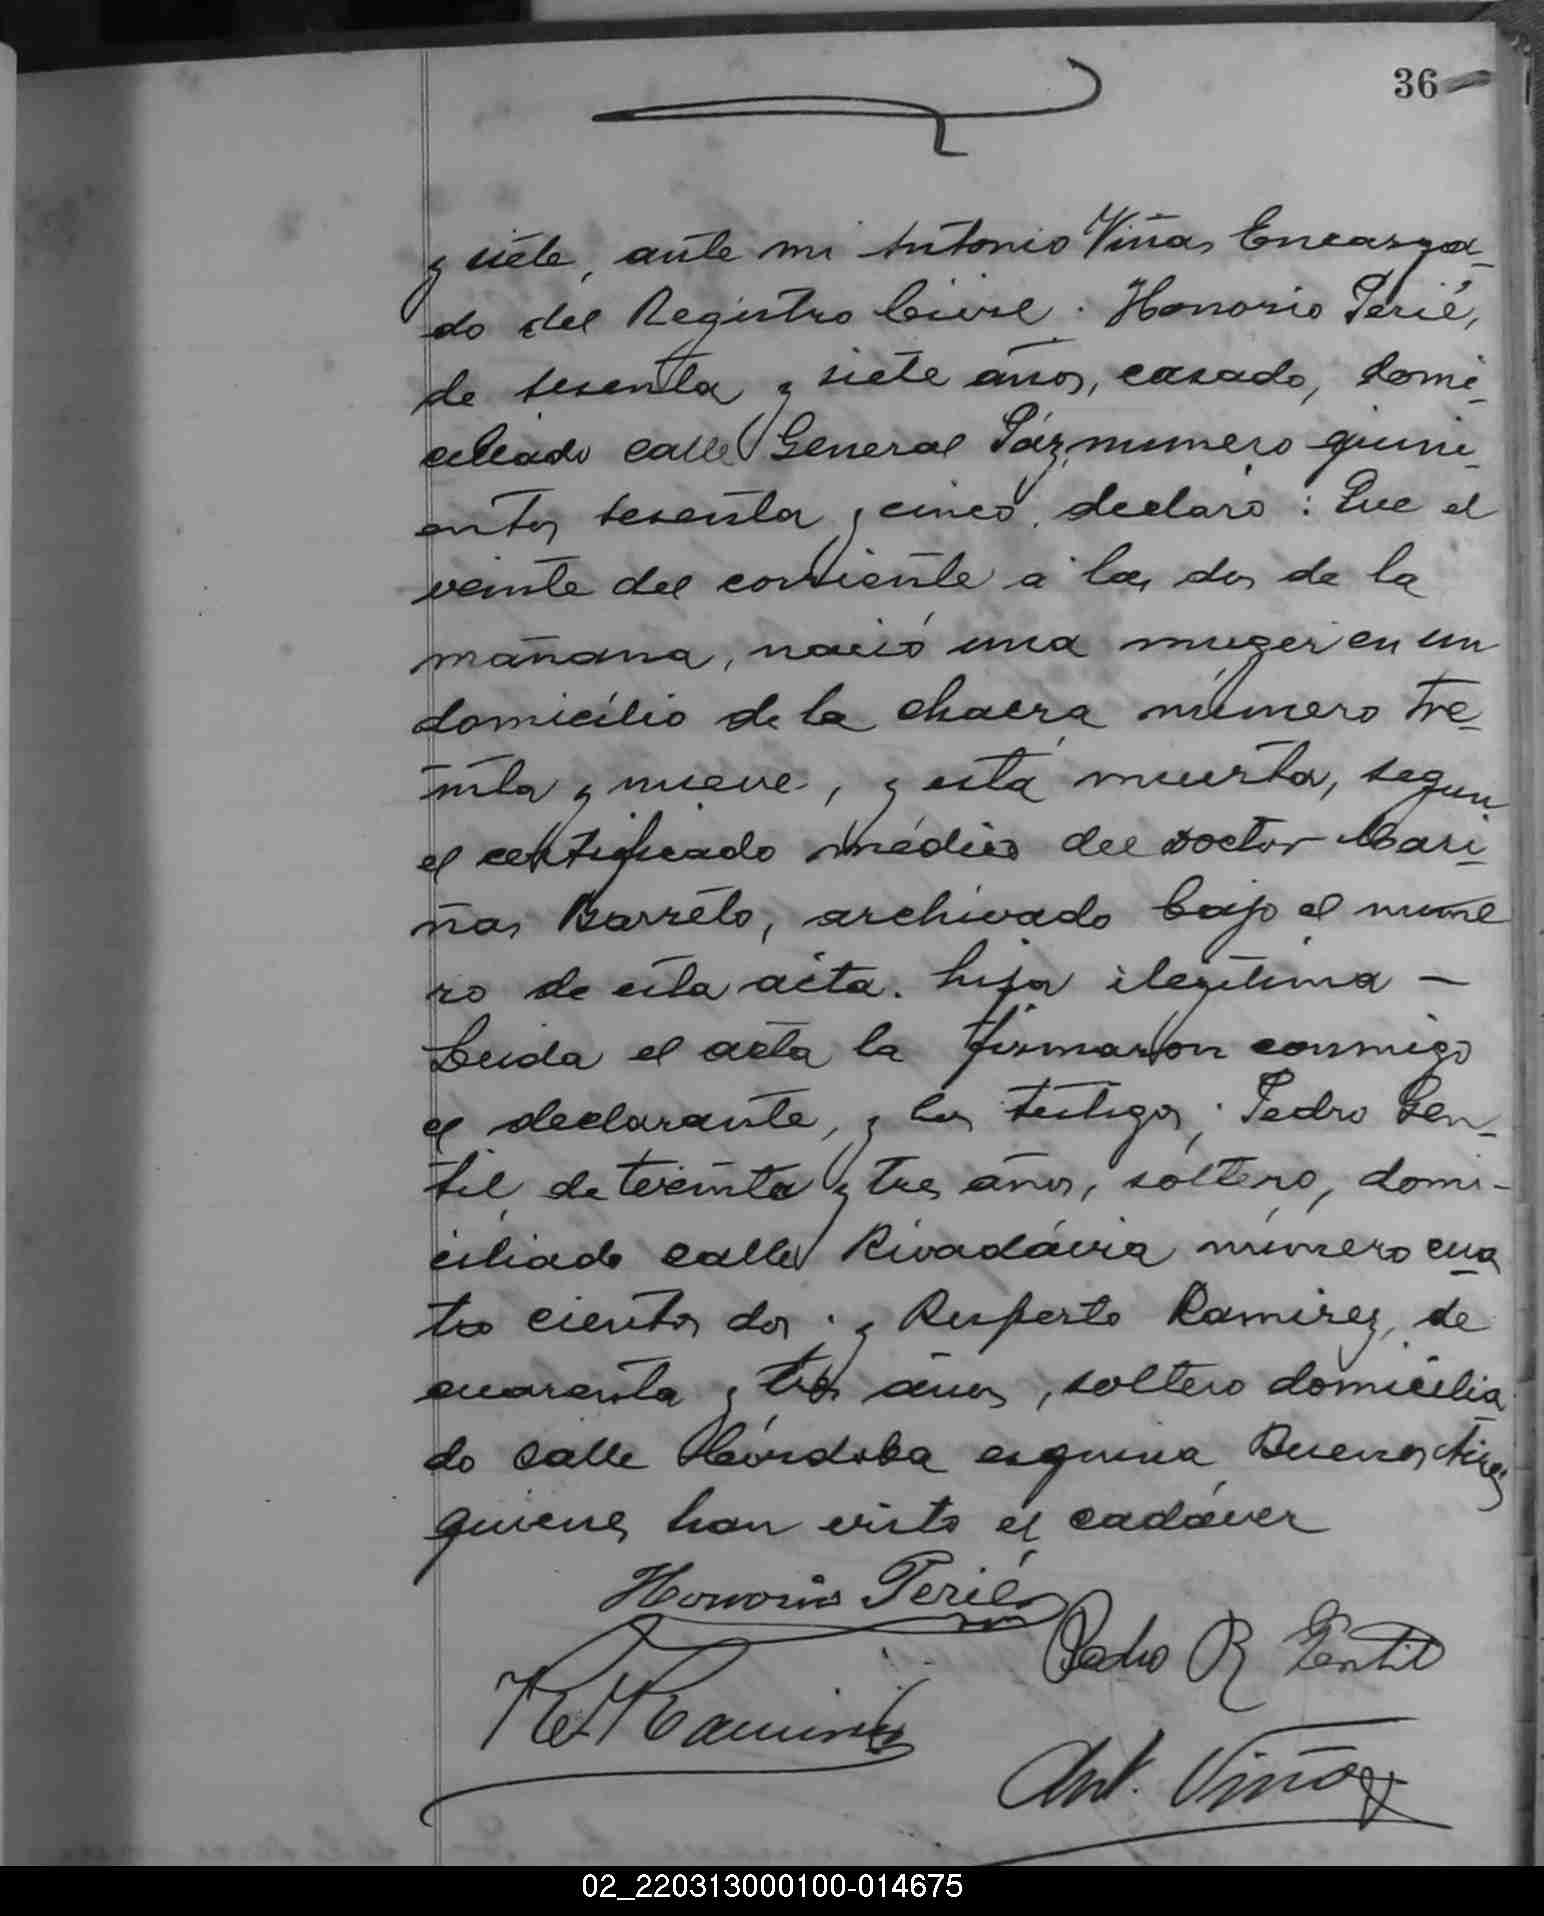 36
y siete, ante mi Antonio Viñas Encarga-
do del Registro Civil. Honorio Perié,
de sesenta y siete años, casado, domi-
ciliado calle General Páz, numero quini-
entos sesenta y cinco, declaró: Que el
veinte del corriente á las dos de la
mañana, nació una muger en un
domicilio de la chacra número tre-
inta y nueve, y está muerta, segun
el certificado médico del Doctor Cari-
ñas Barreto, archivado bajo el núme
ro de esta acta. hija ilegitima —
Leida el acta la firmaron conmigo
el declarante, y los testigos; Pedro Gen-
til, de treinta y tres años, soltero, domi-
ciliado calle Rivadávia número cua
tro cientos dos; y Ruperto Ramirez, de
cuarenta y tres años, soltero domicilia
do calle Córdoba esquina Buenos Aires
quienes han visto el cadáver
Honorio Perié
Pedro R Gentil
R. Ramirez
Ant. Viñas
02_220313000100-014675